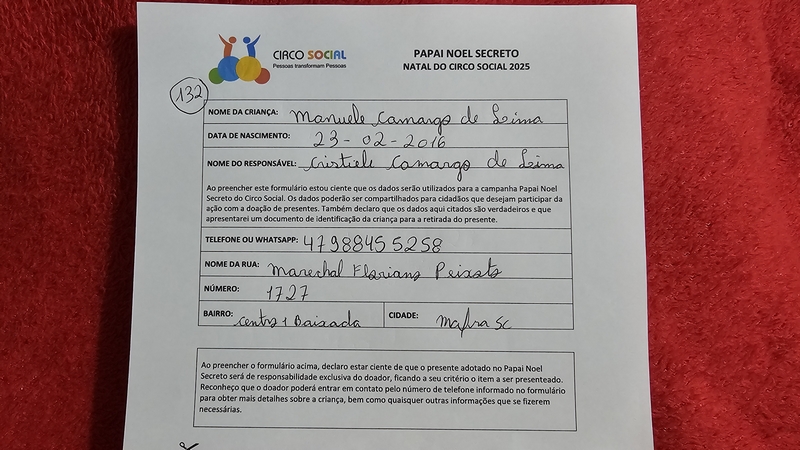 CIRCO SOCIAL
Pessoas transformam Pessoas
PAPAI NOEL SECRETO
NATAL DO CIRCO SOCIAL 2025
132
NOME DA CRIANÇA: Manuele Camargo de Lima
DATA DE NASCIMENTO: 23-02-2016
NOME DO RESPONSÁVEL: Cristiele Camargo de Lima
Ao preencher este formulário estou ciente que os dados serão utilizados para a campanha Papai Noel
Secreto do Circo Social. Os dados poderão ser compartilhados para cidadãos que desejam participar da
ação com a doação de presentes. Também declaro que os dados aqui citados são verdadeiros e que
apresentarei um documento de identificação da criança para a retirada do presente.
TELEFONE OU WHATSAPP: 47988455258
NOME DA RUA: Marechal Floriano Peixoto
NÚMERO: 1727
BAIRRO: Centro 1 Baixada CIDADE: Mafra SC
Ao preencher o formulário acima, declaro estar ciente de que o presente adotado no Papai Noel
Secreto será de responsabilidade exclusiva do doador, ficando a seu critério o item a ser presenteado.
Reconheço que o doador poderá entrar em contato pelo número de telefone informado no formulário
para obter mais detalhes sobre a criança, bem como quaisquer outras informações que se fizerem
necessárias.